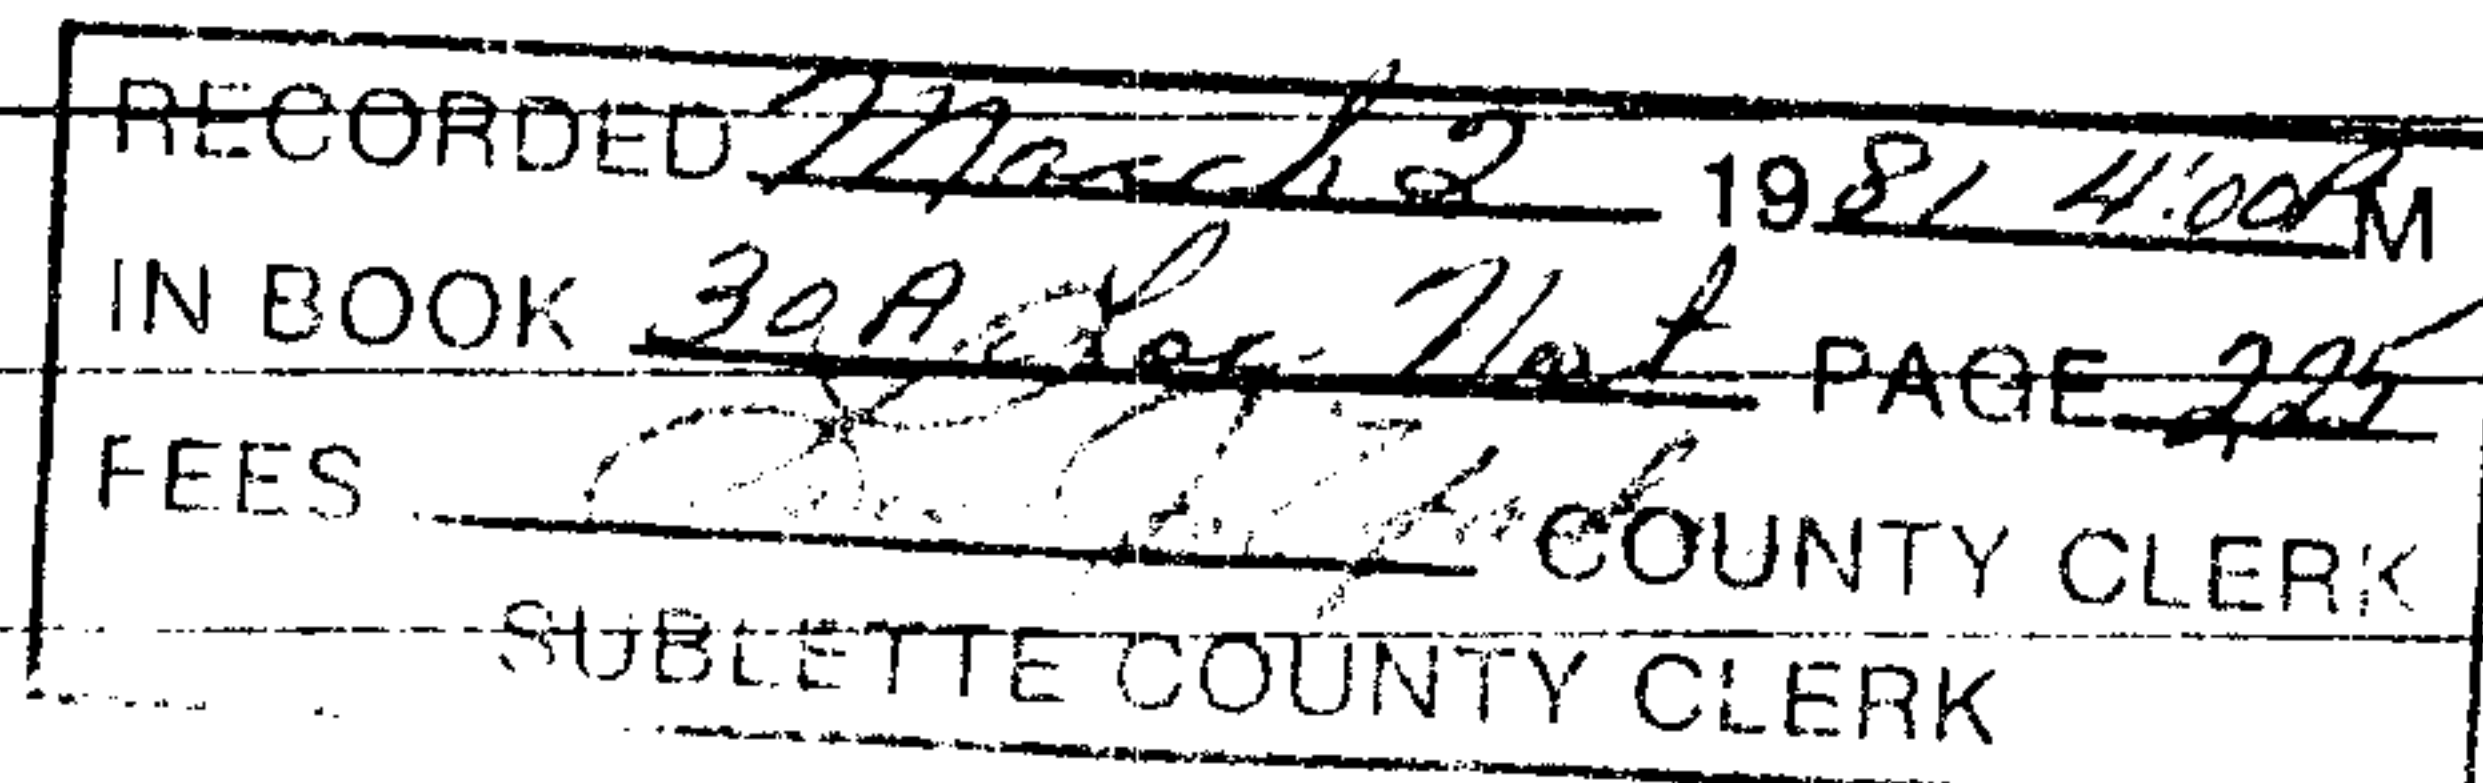 RECORDED March 2 1981 4:00 P M
IN BOOK 30 A. PAGE 225
FEES COUNTY CLERK
SUBLETTE COUNTY CLERK